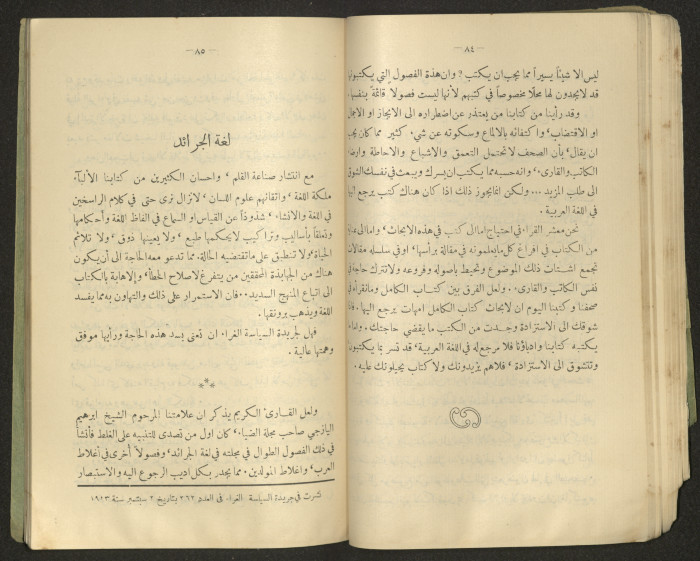 — ٨٤ —
ليس الا شيئاً يسيراً مما يجب ان يكتب ? وان هذة الفصول التي يكتبونها
قد لا يجدون لها محلا مخصوصاً في كتبهم لأنها ليست فصولا قائمة بنفسها.
وقد رأينا من كتابنا من يعتذر عن اضطراره الى الايجاز او الاجمال
او الاقتضاب، واكتفائه بالالماع وسكوته عن شيء كثير مما كان يجب
ان يقال، بأن الصحف لا تحتمل التعمق والاشباع والاحاطة وارضاء
الكاتب والقارىء، وانه حسبه مما يكتب ان يسرك ويبعث في نفسك الشوق
الى طلب المزيد ... ولكن انما يجوز ذلك اذا كان هناك كتب يرجع اليها
في اللغة العربية .
نحن معشر القراء في احتياج اما الى كتب في هذه الابحاث، واما الى عناية
من الكتاب في افراغ كل ما يعلمونه في مقالة برأسها، او في سلسله مقالات
تجمع اشتات ذلك الموضوع وتحيط باصوله وفروعه ولا تترك حاجة في
نفس الكاتب والقارىء . ولعل الفرق بين كتاب الكامل وما نقرأه في
صحفنا وكتبنا اليوم ان لابحاث كتاب الكامل امهات يرجع اليها، فاذا
شوقك الى الاستزادة وجدت من الكتب ما يقضي حاجتك . وما
يكتبه كتابنا وادباؤنا فلا مرجع له في اللغة العربية، قد تسر بما يكتبون
وتتشوق الى الاستزادة، فلا هم يزيدونك ولا كتاب يحيلونك عليه .
— ٨٥ —
لغة الجرائد
مع انتشار صناعة القلم، واحسان الكثيرين من كتابنا الألبآء
ملكة اللغة، واتقانهم علوم اللسان، لا نزال نرى حتى في كلام الراسخين
في اللغة والانشاء، شذوذاً عن القياس او السماع في الفاظ اللغة واحكامها
وتعلقاً بأساليب وتراكيب لا يحكمها طبع، ولا يعينها ذوق، ولا تلائم
الحياة، ولا تنطبق على ما تقتضيه الحالة. مما تدعو معه الحاجة الى أن يكون
هناك من الجهابذة المحققين من يتفرغ لاصلاح الخطأ، والاهابة بالكتاب
الى اتباع المنهج السديد .. فان الاستمرار على ذلك والتهاون به مما يفسد
اللغة ويذهب برونقها .
فهل لجريدة السياسة الغراء ان تعنى بسد هذه الحاجة ورأيها موفق
وهمتها عالية .
***
ولعل القارىء الكريم يذكر ان علامتنا المرحوم الشيخ ابرهيم
اليازجي صاحب مجلة الضياء، كان اول من تصدى للتنبيه على الغلط فأنشأ
في ذلك الفصول الطوال في مجلته في لغة الجرائد، وفصولاً أخرى في أغلاط
العرب، واغلاط المولدين، مما يجدر بكل اديب الرجوع اليه والاستبصار
نشرت في جريدة السياسة الغراء في العدد ٢٦٢ بتاريخ ٢ سبتمبر سنة ١٩٢٣